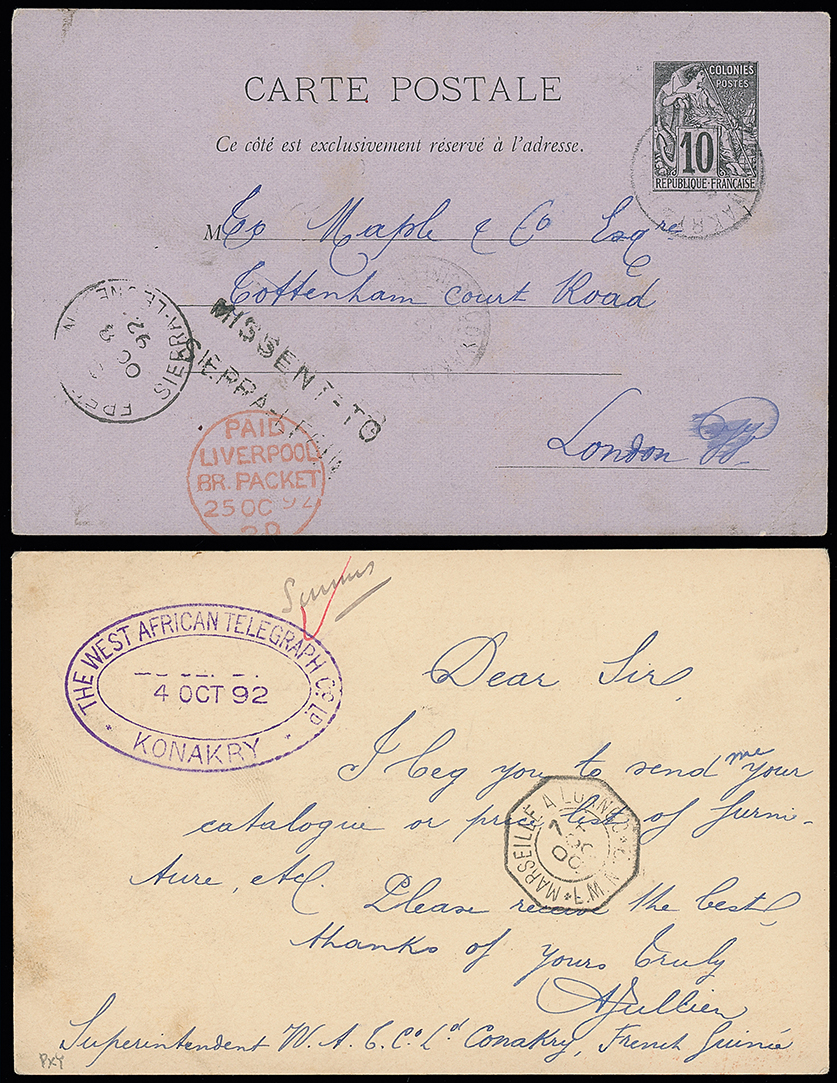 COLONIES
POSTES
10
RÉPUBLIQUE·FRANÇAISE
CARTE POSTALE
Ce côté est exclusivement réservé à l'adresse.
M To Maple & Co Esqre
Tottenham Court Road
London W.
NAKRY
SIERRA-LEONE
OC
92
MISSENT-TO
SIERRA-LEONE
PAID
LIVERPOOL
BR. PACKET
25 OC 92
THE WEST AFRICAN TELEGRAPH Co. Ld.
4 OCT 92
KONAKRY
Dear Sir,
I beg you to send me your
catalogue or price list of furni-
ture, etc. Please receive the best
thanks of yours truly
AJullien
Superintendent W. A. T. Co Ld Conakry, French Guinée
MARSEILLE A LOANGO
7
OC
PXY